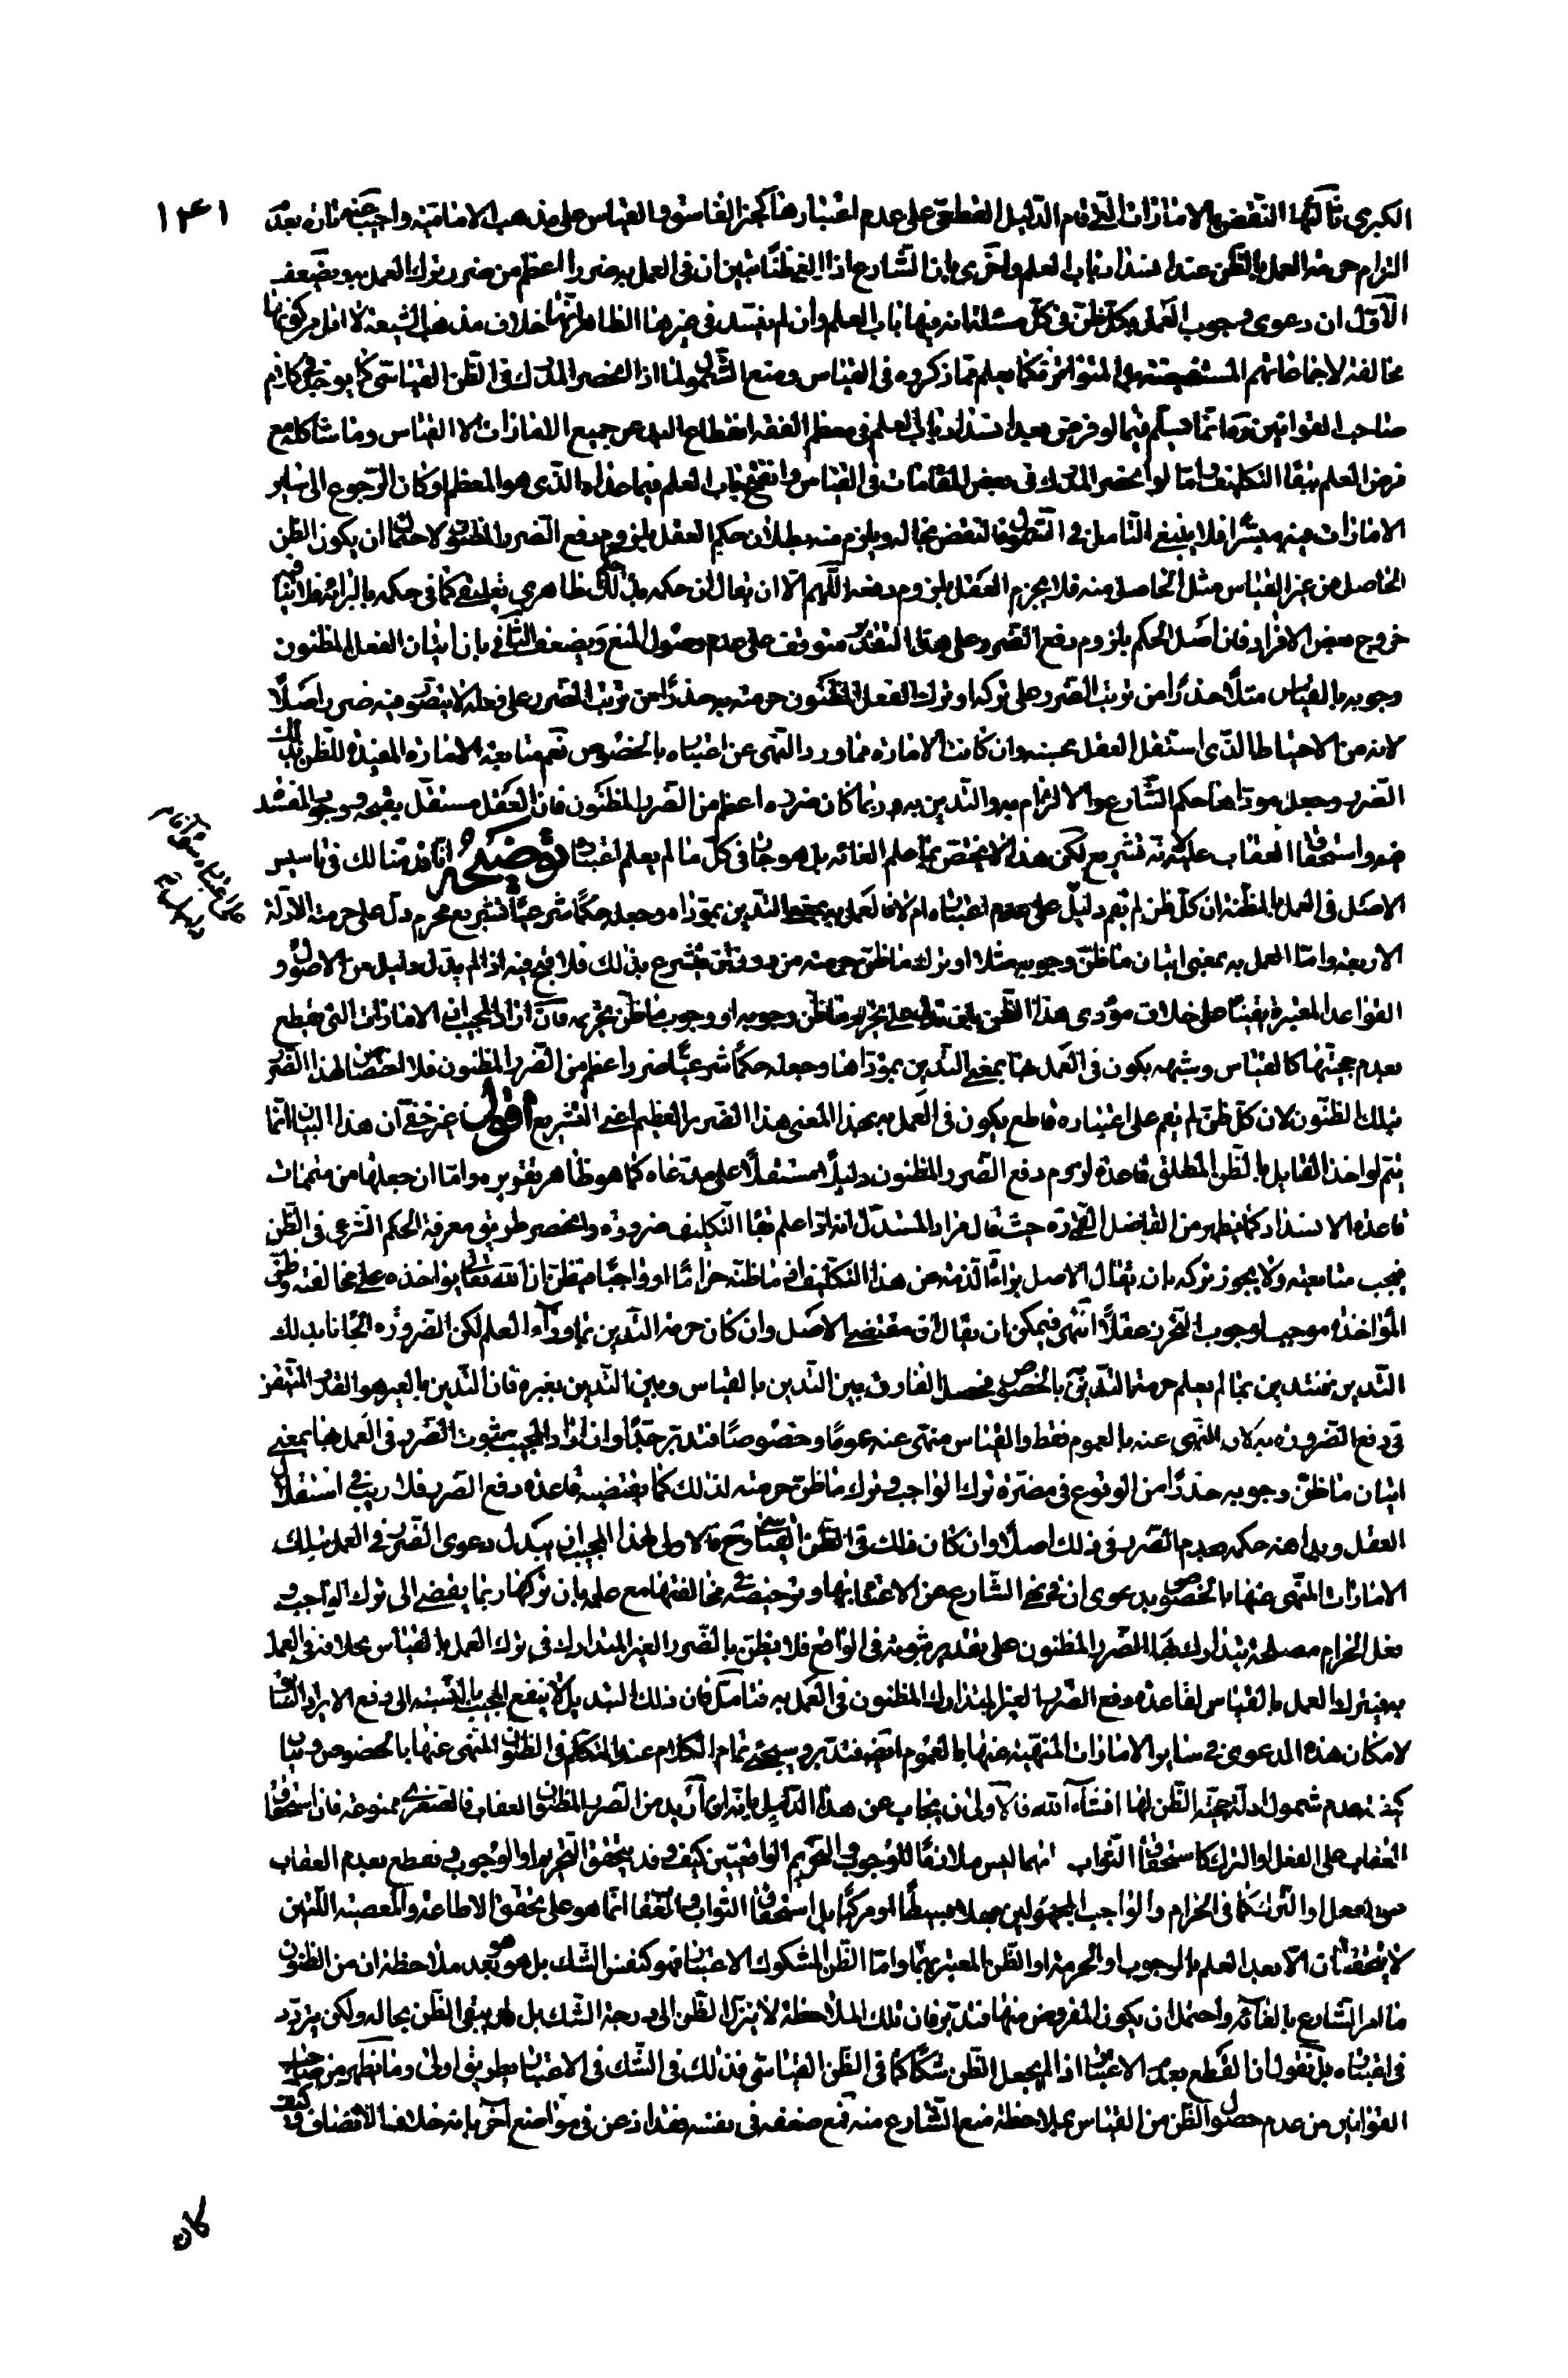 ١٤١
الكبرى ثالثها النقض بالامارات التى قام الدليل القطعى على عدم اعتبارها كخبر الفاسق والقياس على مذهب الامامية واجيب عنه تارة بعدم
التزام حرمة العمل بالظن عند انسداد باب العلم واخرى بان الشارع اذا الغى ظنا تبين ان فى العمل به ضررا اعظم من ضرر ترك العمل به ويضعف
الاول ان دعوى وجوب العمل بكل ظن فى كل مسئلة انسد فيها باب العلم وان لم ينسد فى غيرها الظاهر انها خلاف مذهب الشيعة لا اقل من كونها
مخالفة لاجماعاتهم المستفيضة بل المتواترة كما يعلم مما ذكروه فى القياس ومنع الشمول لما اذا انحصر المدرك فى الظن القياسى كما يوجد فى كلام
صاحب القوانين ره انما يسلم فيما لو فرض بعد انسداد باب العلم فى معظم الفقه انقطاع اليد عن جميع الامارات الا القياس وما شاكله مع
فرض العلم ببقاء التكليف واما لو انحصر المدرك فى بعض المقامات فى القياس وانفتح باب العلم فيما عداه الذى هو المعظم او كان الرجوع الى ساير
الامارات فيه ميسرا فلا ينبغى التامل فى الشمول فالنقض بحاله ويلزم منه بطلان حكم العقل بلزوم دفع الضرر المظنون لاحتمال ان يكون الظن
الحاصل من غير القياس مثل الحاصل منه فلا يجزم العقل بلزوم دفعه اللهم الا ان يقال ان حكمه بذلك حكم ظاهرى تعليقى كما فى حكمه بالبرائة فلا ينافيه
خروج بعض الافراد فان اصل الحكم بلزوم دفع الضرر على هذا التقدير متوقف على عدم وصول المنع ويضعف الثانى بان اتيان الفعل المظنون
وجوبه بالقياس مثلا حذرا من ترتب الضرر على تركه او ترك الفعل المظنون حرمته به حذرا من ترتب الضرر على فعله لا يتصور فيه ضرر اصلا
لانه من الاحتياط الذى استقل العقل بحسنه وان كانت الامارة مما ورد النهى عن اعتباره بالخصوص نعم متابعة الامارة المفيدة للظن بذلك
الضرر وجعل مؤداها حكم الشارع والالتزام به والتدين به ربما كان ضرره اعظم من الضرر المظنون فان العقل مستقل بقبحه ووجوب المفسدة
فيه واستحقاق العقاب عليه لانه تشريع لكن هذا لا يختص بما علم الغائه بل هو جار فى كل ما لم يعلم اعتباره توضيحه انا قدمنا لك فى تاسيس
الاصل فى العمل بالمظنة ان كل ظن لم يقم دليل على عدم اعتباره ام لا فالعمل به بمعنى التدين بمؤداه وجعله حكما شرعيا تشريع محرم دل على حرمته الادلة
الاربعة واما العمل به بمعنى اتيان ما ظن وجوبه مثلا او ترك ما ظن حرمته من دون ان يتشرع بذلك فلا قبح فيه اذا لم يدل دليل من الاصول و
القواعد المعتبرة يقينا على خلاف مؤدى هذا الظن بان يدل على تحريم ما ظن وجوبه او وجوب ما ظن تحريمه فان اراد المجيب ان الامارات التى يقطع
بعدم حجيتها كالقياس وشبهه يكون فى العمل بها بمعنى التدين بمؤداها وجعله حكما شرعيا ضررا اعظم من الضرر المظنون فلا اختصاص لهذا الضرر
بتلك الظنون لان كل ظن لم يقم على اعتباره قاطع يكون فى العمل به بهذا المعنى هذا الضرر العظيم اعنى التشريع اقول غير خفى ان هذا البيان انما
يتم لو اخذ القايل بالظن المطلق قاعدة لزوم دفع الضرر المظنون دليلا مستقلا على مدعاه كما هو ظاهر تقريره واما ان جعلها من متممات
قاعدة الانسداد كما يظهر من الفاضل النراقى ره حيث قال مراد المستدل انه لو علم بقاء التكليف ضرورة وانحصر طريق معرفة الحكم الشرعى فى الظن
فيجب متابعته ولا يجوز تركه بان يقال الاصل براءة الذمة عن هذا التكليف فى ما ظنه حراما او واجبا مع ظن ان الله تعالى يؤاخذه على مخالفته وظن
المؤاخذة موجب لوجوب التحرز عقلا انتهى فيمكن ان يقال ان مقتضى الاصل وان كان حرمة التدين بما وراء العلم لكن الضرورة الجأتنا بذلك
التدين فنتدين بما لم يعلم حرمة التدين به بالخصوص فحصل الفارق بين التدين بالقياس وبين التدين بغيره فان التدين بالغير هو القدر المتيقن
فى دفع الضرورة به لان النهى عنه بالعموم فقط والقياس منهى عنه عموما وخصوصا فتدبر جدا وان اراد المجيب ثبوت الضرر فى العمل بها بمعنى
اتيان ما ظن وجوبه حذرا من الوقوع فى مضرة ترك الواجب وترك ما ظن حرمته لذلك كما يقتضيه قاعدة دفع الضرر فلا ريب فى استقلال
العقل وبداهة حكمه بعدم الضرر فى ذلك اصلا وان كان ذلك فى الظن القياسى وح فالاولى لهذا المجيب ان يبدل دعوى الضرر فى العمل بتلك
الامارات المنهى عنها بالخصوص بدعوى ان فى نهى الشارع عن الاعتناء بها وترخيصه فى مخالفتها مع علمه بان تركها ربما يفضى الى ترك الواجب و
فعل الحرام مصلحة يتدارك بها الضرر المظنون على تقدير ثبوته فى الواقع فلا يظن بالضرر الغير المتدارك فى ترك العمل بالقياس بخلافه فى العمل
به فيترك العمل بالقياس لقاعدة دفع الضرر الغير المتدارك المظنون فى العمل به فتامل فان ذلك التبديل لا ينفع المجيب بالنسبة الى دفع الايراد السابق
لامكان هذه الدعوى فى ساير الامارات المنهية عنها بالعموم ايضا فتدبر وسيجئ تمام الكلام عند التكلم فى الظنون المنهى عنها بالخصوص وبيان
كيفية عدم شمول ادلة حجية الظن لها انشاء الله فالاولى ان يجاب عن هذا الدليل بانه ان اريد من الضرر المظنون العقاب فالصغرى ممنوعة فان استحقاق
العقاب على الفعل او الترك كاستحقاق الثواب عليهما ليس ملازما للوجوب والتحريم الواقعيين كيف وقد يتحقق التحريم او الوجوب ونقطع بعدم العقاب
فى الفعل او الترك كما فى الحرام والواجب المجهولين جهلا بسيطا او مركبا بل استحقاق الثواب والعقاب انما هو على تحقق الاطاعة والمعصية اللتين
لا يتحققان الا بعد العلم بالوجوب او الحرمة او الظن المعتبر بهما واما الظن المشكوك الاعتبار فهو كنفس الشك بل هو هو بعد ملاحظة ان من الظنون
ما امر الشارع بالغائه واحتمل ان يكون المفروض منها فتدبر فان تلك الملاحظة لا ينزل الظن الى درجة الشك بل هى يبقى الظن بحاله ولكن يتردد
فى اعتباره بل نقول ان القطع بعدم الاعتبار اذا لم يجعل الظن شكا كما فى الظن القياسى فذلك فى الشك فى الاعتبار بطريق اولى وما يظهر من صاحب
القوانين من عدم حصول الظن من القياس بملاحظة منع الشارع منه فمع ضعفه فى نفسه فقد اذعن فى مواضع آخر بانه خلاف الانصاف وكيف
كان